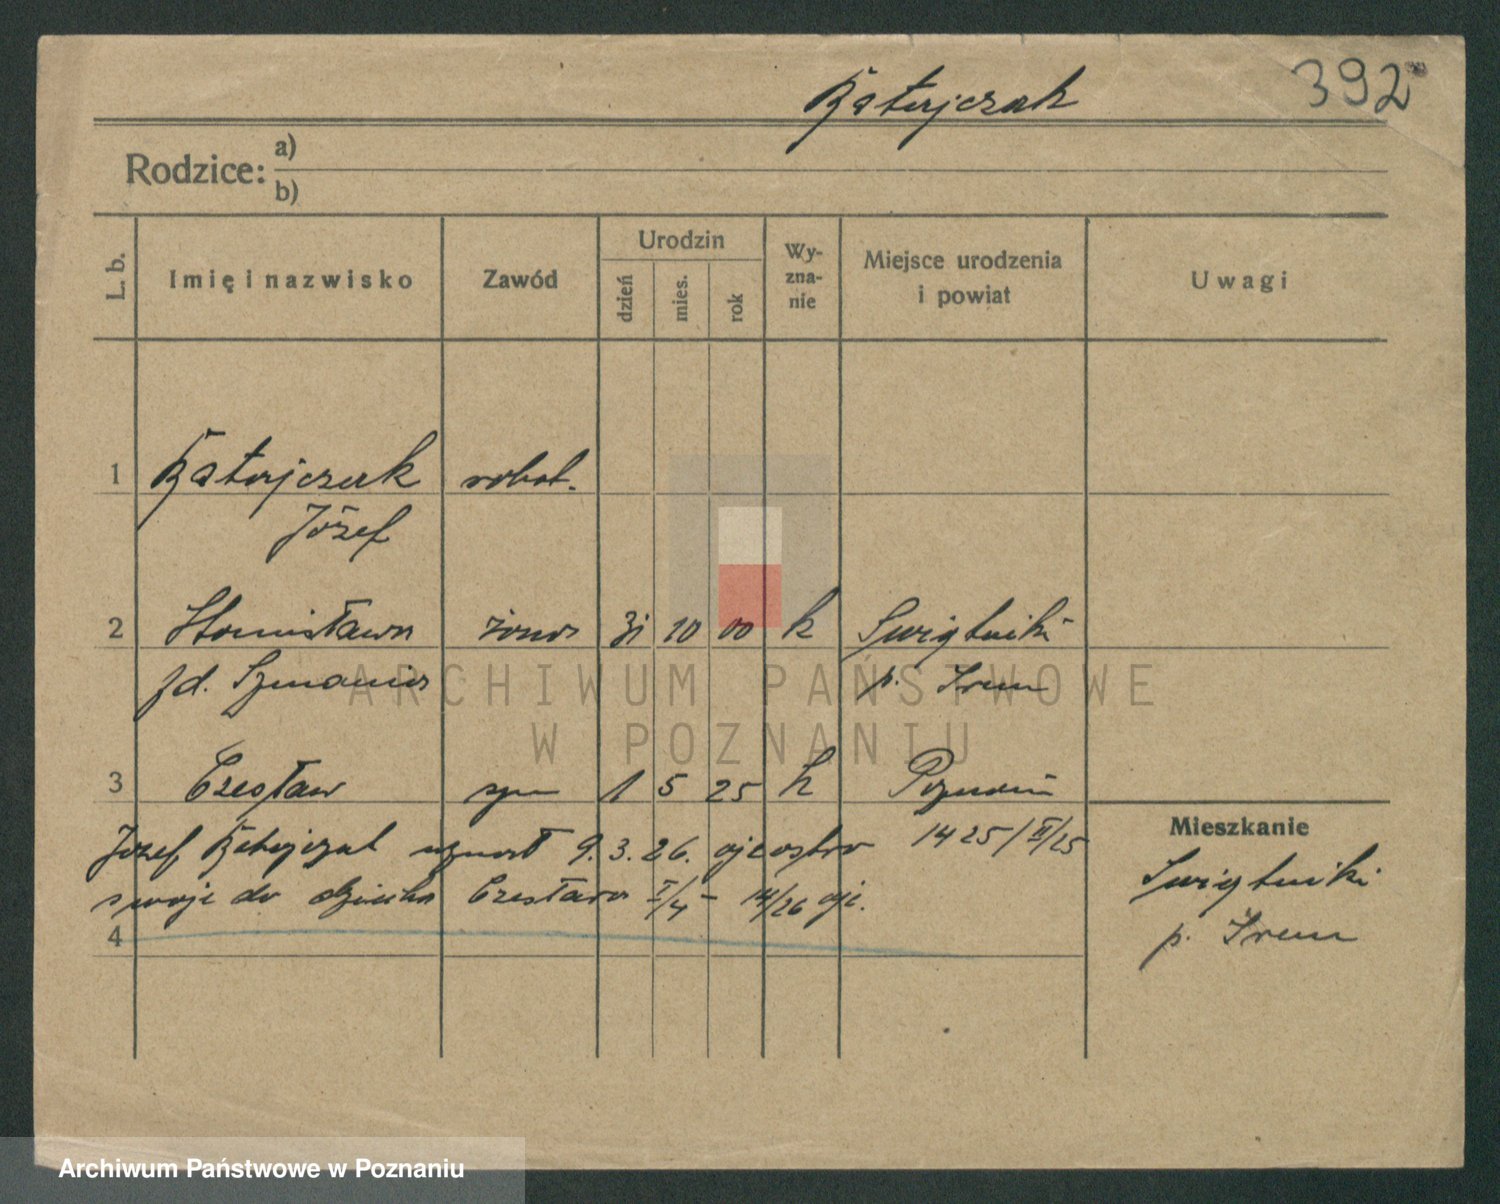 392
Ratajczak
Rodzice: a)
b)
L. b. Imię i nazwisko Zawód Urodzin dzień mies. rok Wy-zna-nie Miejsce urodzenia i powiat Uwagi
1 Ratajczak robot.
Józef
2 Stanisława żona 31 10 00 k Świątniki
zd. Szmania p. Śrem
3 Czesław syn 1 5 25 k Poznań
1425/II/25
Józef Ratajczak uznał 9.3.26. ojcostwo
swoje do dziecka Czesława I/4 - 14/26 oji.
4
Mieszkanie
Świątniki
p. Śrem
ARCHIWUM PAŃSTWOWE
W POZNANIU
Archiwum Państwowe w Poznaniu